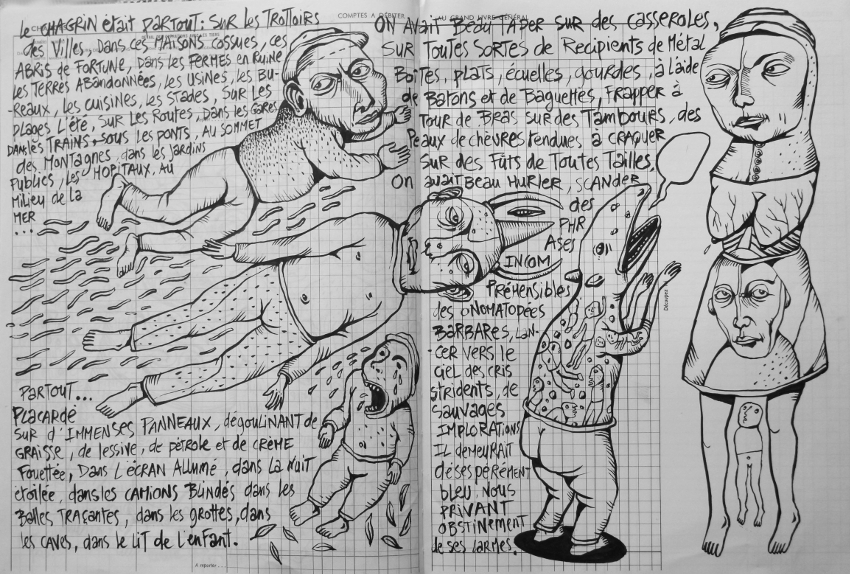 le CHAGRIN était PARTOUT : SUR les Trottoirs
des Villes, dans ces MAISONS cossues, ces
ABRIS de FORTUNE, dans les FERMES en Ruine
les TERRES ABANDONNÉES, les USINES, les BU-
-REAUX, les CUISINES, les STADES, SUR LES
PLAGES L'ÉTÉ, SUR LES ROUTES, DANS LES GARES
DANS LES TRAINS, SOUS LES PONTS, AU SOMMET
des MONTAGNES, dans les JARDINS
PUBLICS, LES HOPITAUX, AU
MILIEU de LA
MER
...
PARTOUT...
PLACARDÉ
SUR d'IMMENSES PANNEAUX, dégoulinant de
GRAISSE, de lessive, de pétrole et de CRÈME
Fouettée, Dans L'ÉCRAN ALLUMÉ, dans LA NUIT
étoilée, dans les CAMIONS Blindés dans les
Balles TRAÇANTES, dans les grottes, dans
les CAVES, dans le LIT de l'enfant.
A reporter
COMPTES A DÉBITER
AU GRAND LIVRE GÉNÉRAL
ON AVAIT BEAU TAPER SUR des CASSEROLES,
SUR TOUTES SORTES de Récipients de Métal
Boîtes, plats, écuelles, gourdes, à l'aide
de Bâtons et de Baguettes, Frapper à
Tour de BRAS sur des TAMBOURS, des
Peaux de chèvres tendues à CRAQUER
SUR des Fûts de Toutes Tailles,
On avait Beau Hurler, SCANDER
des
PHR
ASES
INCOM
PRÉHENSIBLES
des ONOMATOPÉES
BARBARES, LAN-
-CER VERS le
CIEL des CRIS
stridents, de
SAUVAGES
IMPLORATIONS
IL dEMEURAIT
déSESPÉRÉMENT
bleu. NOUS
PRIVANT
OBSTINÉMENT
de ses LARMES.
Découpez